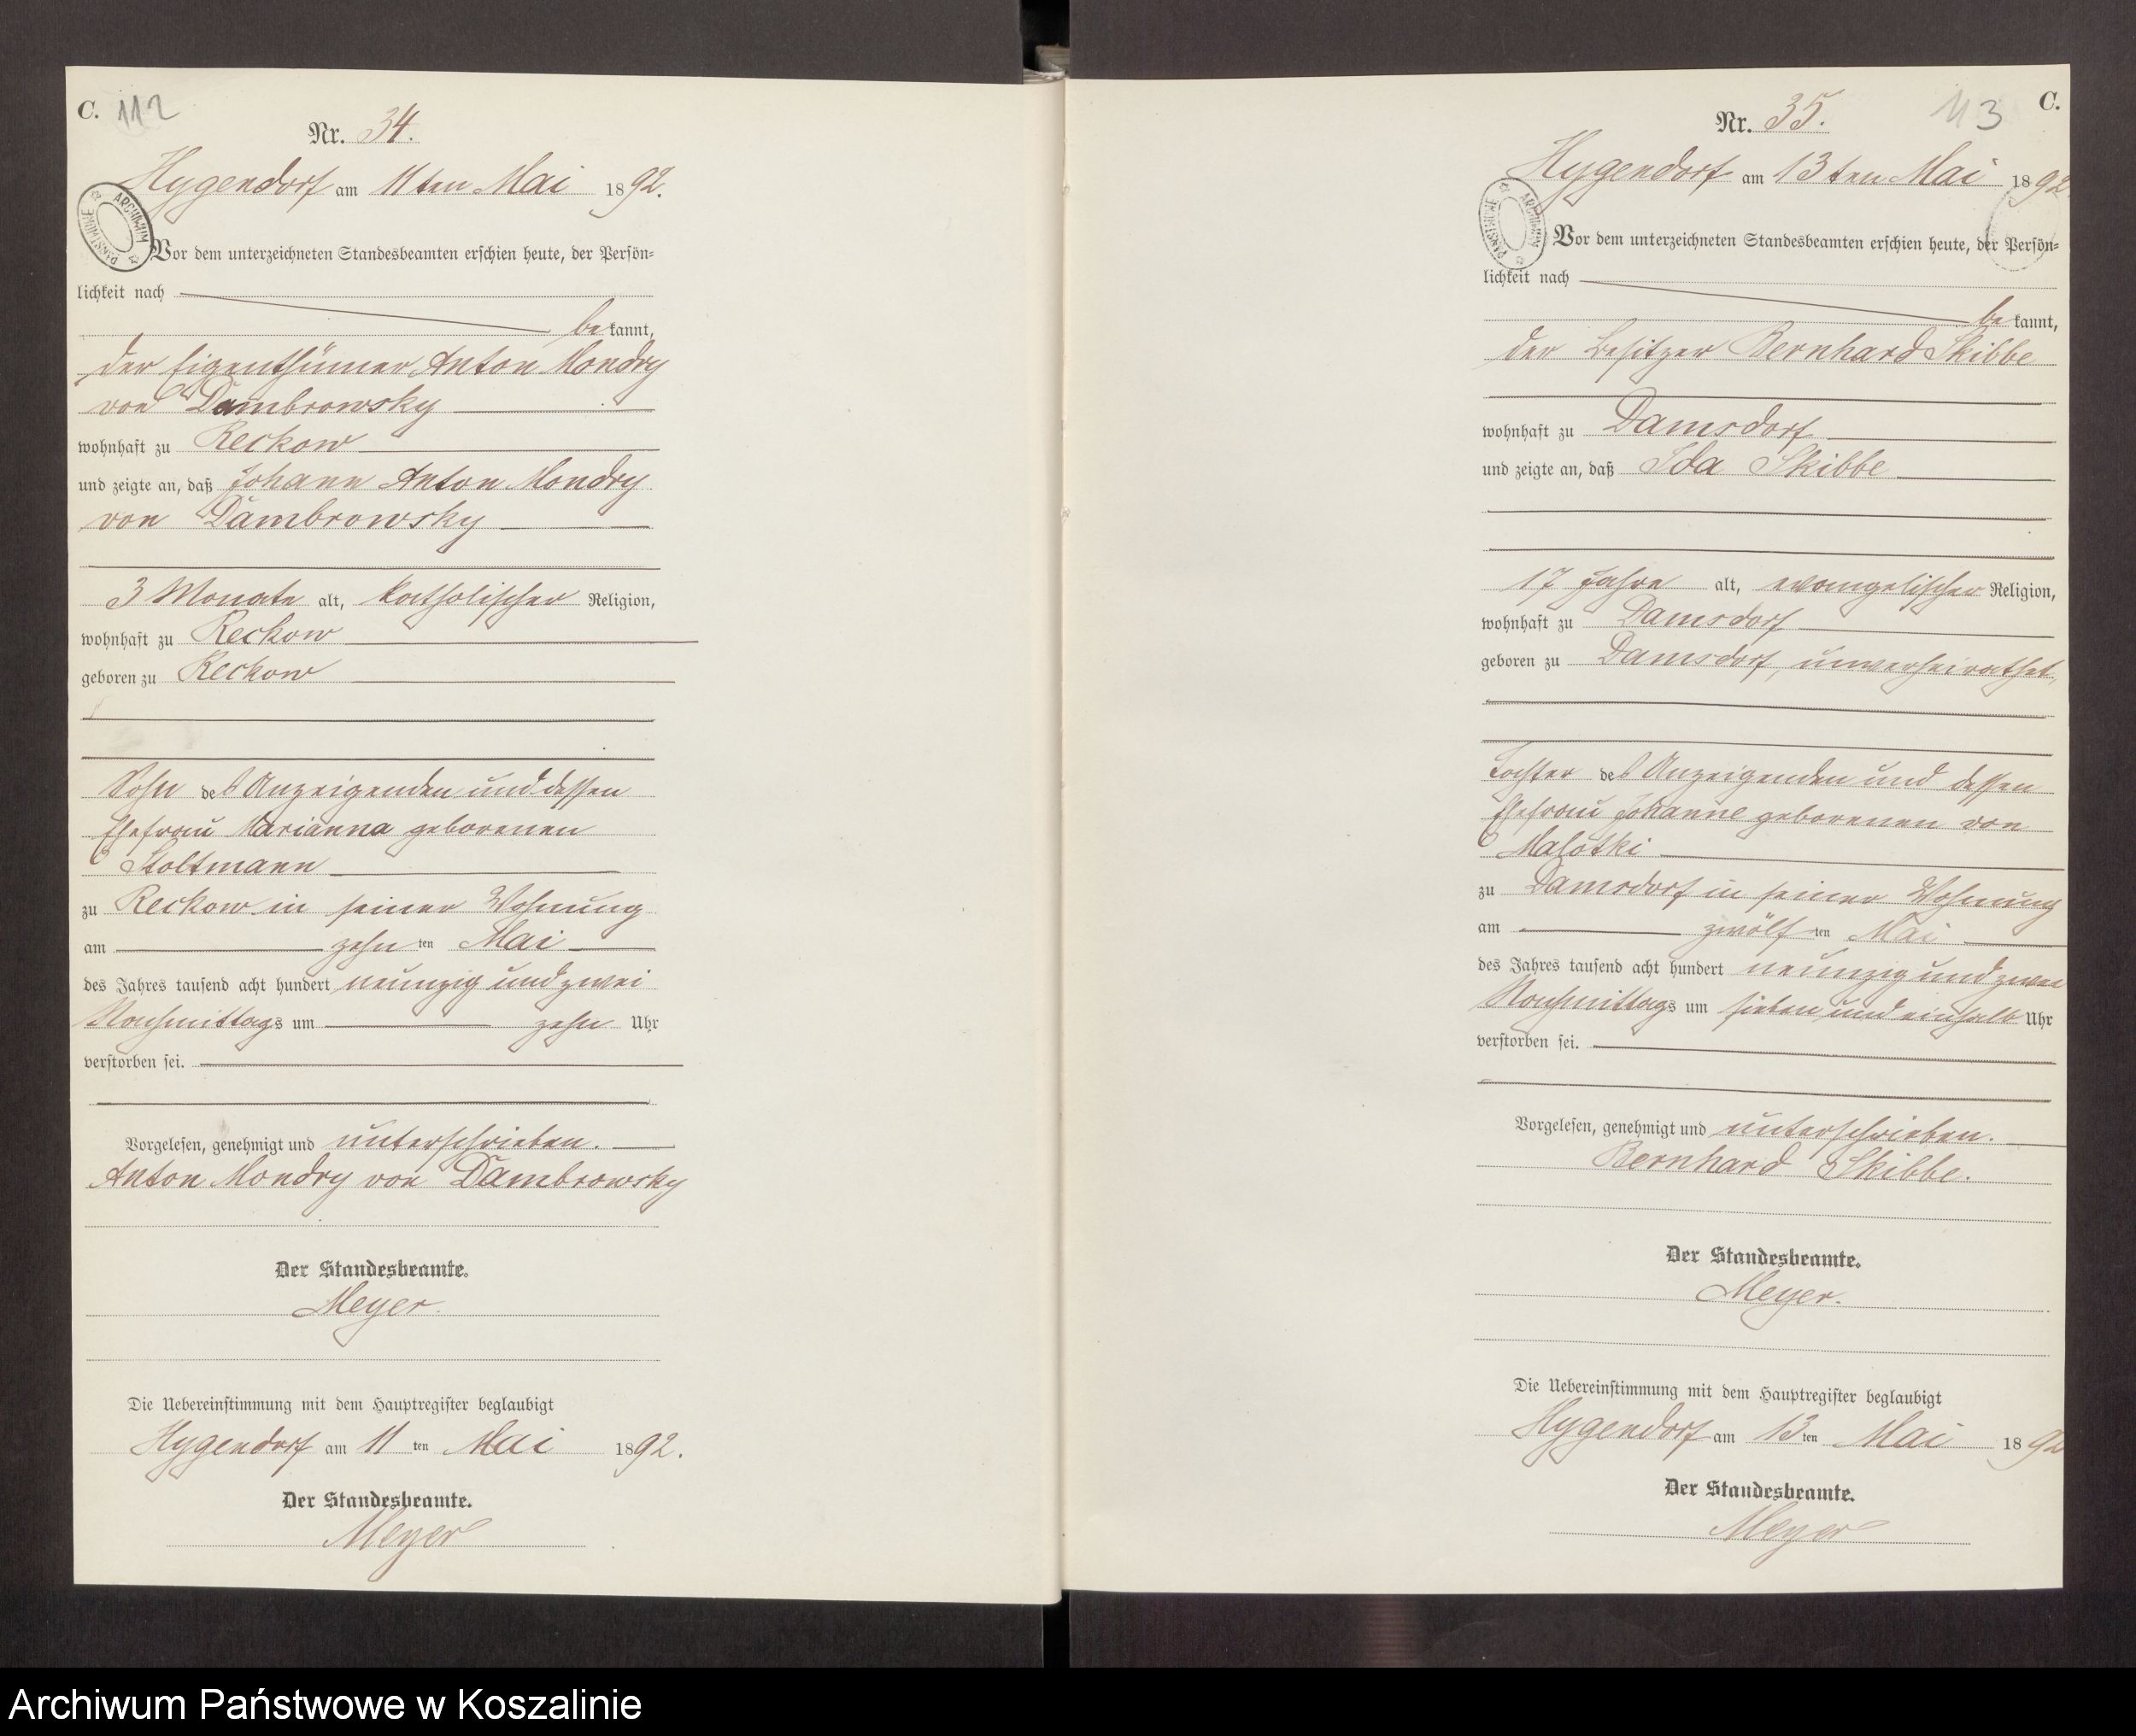 C. 112
Nr. 34.
Hygendorf am 11ten Mai 1892.
ARCHIWUM PAŃSTWOWE
Vor dem unterzeichneten Standesbeamten erschien heute, der Persön-
lichkeit nach
be kannt,
der Eigenthümer Anton Mondry
von Dambrowsky
wohnhaft zu Reckow
und zeigte an, daß Johann Anton Mondry
von Dambrowsky
3 Monate alt, katholischer Religion,
wohnhaft zu Reckow
geboren zu Reckow
Sohn des Anzeigenden und dessen
Ehefrau Marianna geborenen
Stoltmann
zu Reckow in seiner Wohnung
am zehn ten Mai
des Jahres tausend acht hundert neunzig und zwei
Nachmittags um zehn Uhr
verstorben sei.
Vorgelesen, genehmigt und unterschrieben.
Anton Mondry von Dambrowsky
Der Standesbeamte.
Meyer.
Die Uebereinstimmung mit dem Hauptregister beglaubigt
Hygendorf am 11 ten Mai 1892.
Der Standesbeamte.
Meyer
113 C.
Nr. 35.
Hygendorf am 13ten Mai 1892
ARCHIWUM PAŃSTWOWE
Vor dem unterzeichneten Standesbeamten erschien heute, der Persön-
lichkeit nach
be kannt,
der Besitzer Bernhard Skibbe
wohnhaft zu Damsdorf
und zeigte an, daß Ida Skibbe
17 Jahre alt, evangelischer Religion,
wohnhaft zu Damsdorf
geboren zu Damsdorf, unverheirathet,
Tochter des Anzeigenden und dessen
Ehefrau Johanne geborenen von
Malotki
zu Damsdorf in seiner Wohnung
am zwölf ten Mai
des Jahres tausend acht hundert neunzig und zwei
Nachmittags um sieben und einhalb Uhr
verstorben sei.
Vorgelesen, genehmigt und unterschrieben.
Bernhard Skibbe.
Der Standesbeamte.
Meyer.
Die Uebereinstimmung mit dem Hauptregister beglaubigt
Hygendorf am 13 ten Mai 1892
Der Standesbeamte.
Meyer
Archiwum Państwowe w Koszalinie